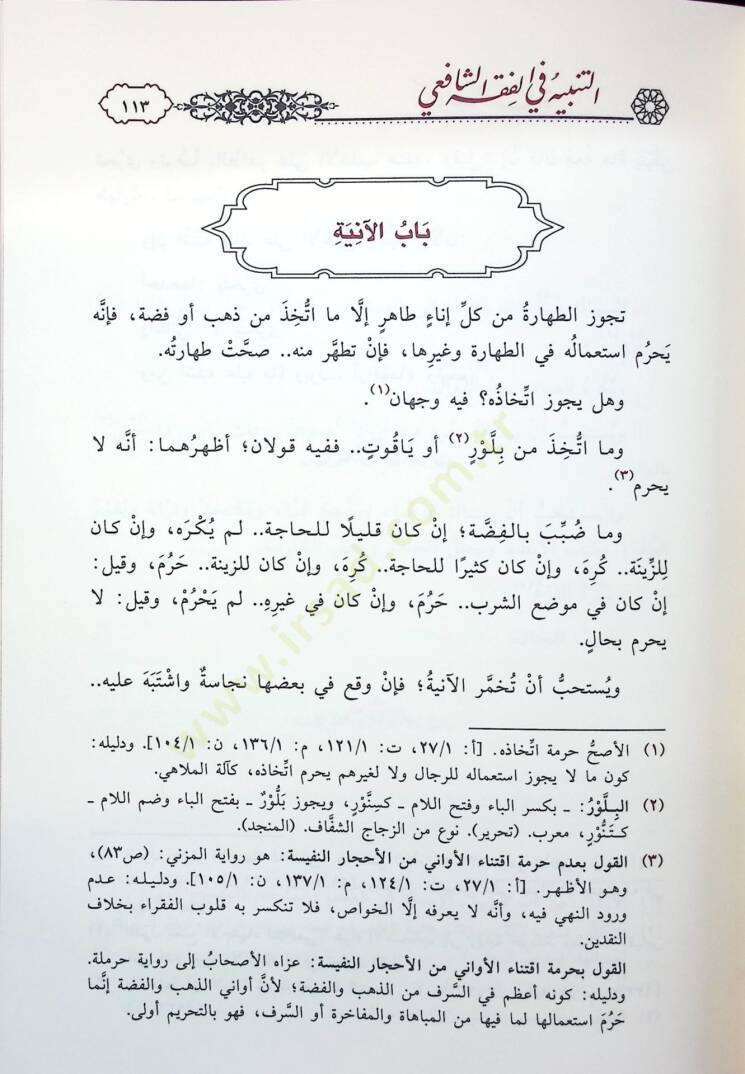 التنبيه في الفقه الشافعي
١١٣
بَابُ الآنِيَةِ
تجوز الطهارةُ من كلِّ إناءٍ طاهرٍ إلَّا ما اتُّخِذَ من ذهب أو فضة، فإنَّه
يَحرُم استعمالُه في الطهارة وغيرِها، فإنْ تطهَّر منه.. صحَّتْ طهارتُه.
وهل يجوز اتِّخاذُه؟ فيه وجهان(١).
وما اتُّخِذَ من بِلَّوْرٍ(٢) أو يَاقُوتٍ.. ففيه قولان؛ أظهرُهما: أنَّه لا
يحرم(٣).
وما ضُبِّبَ بالفِضَّة؛ إنْ كان قليلًا للحاجة.. لم يُكْرَه، وإنْ كان
لِلزِّينَة.. كُرِهَ، وإنْ كان كثيرًا للحاجة.. كُرِهَ، وإنْ كان للزينة.. حَرُمَ، وقيل:
إنْ كان في موضع الشرب.. حَرُمَ، وإنْ كان في غيرِهِ.. لم يَحْرُمْ، وقيل: لا
يحرم بحالٍ.
ويُستحبُّ أنْ تُخمَّر الآنيةُ؛ فإنْ وقع في بعضها نجاسةٌ واشْتَبَهَ عليه..
(١) الأصحُّ حرمة اتِّخاذه. [أ: ٢٧/١، ت: ١٢١/١، م: ١٣٦/١، ن: ١٠٤/١]. ودليله:
كون ما لا يجوز استعماله للرجال ولا لغيرهم يحرم اتِّخاذه، كآلة الملاهي.
(٢) البِلَّوْرُ: ـ بكسر الباء وفتح اللام ـ كسِنَّوْرٍ، ويجوز بَلُّوْرٌ ـ بفتح الباء وضم اللام ـ
كـتَنُّوْرٍ، معرب. (تحرير). نوع من الزجاج الشفَّاف. (المنجد).
(٣) القول بعدم حرمة اقتناء الأواني من الأحجار النفيسة: هو رواية المزني: (ص٨٣)،
وهو الأظهر. [أ: ٢٧/١، ت: ١٢٤/١، م: ١٣٧/١، ن: ١٠٥/١]. ودليله: عدم
ورود النهي فيه، وأنَّه لا يعرفه إلَّا الخواص، فلا تنكسر به قلوب الفقراء بخلاف
النقدين.
القول بحرمة اقتناء الأواني من الأحجار النفيسة: عزاه الأصحابُ إلى رواية حرملة.
ودليله: كونه أعظم في السَّرف من الذهب والفضة؛ لأنَّ أواني الذهب والفضة إنَّما
حَرُمَ استعمالها لما فيها من المباهاة والمفاخرة أو السَّرف، فهو بالتحريم أولى.
www.irsad.com.tr